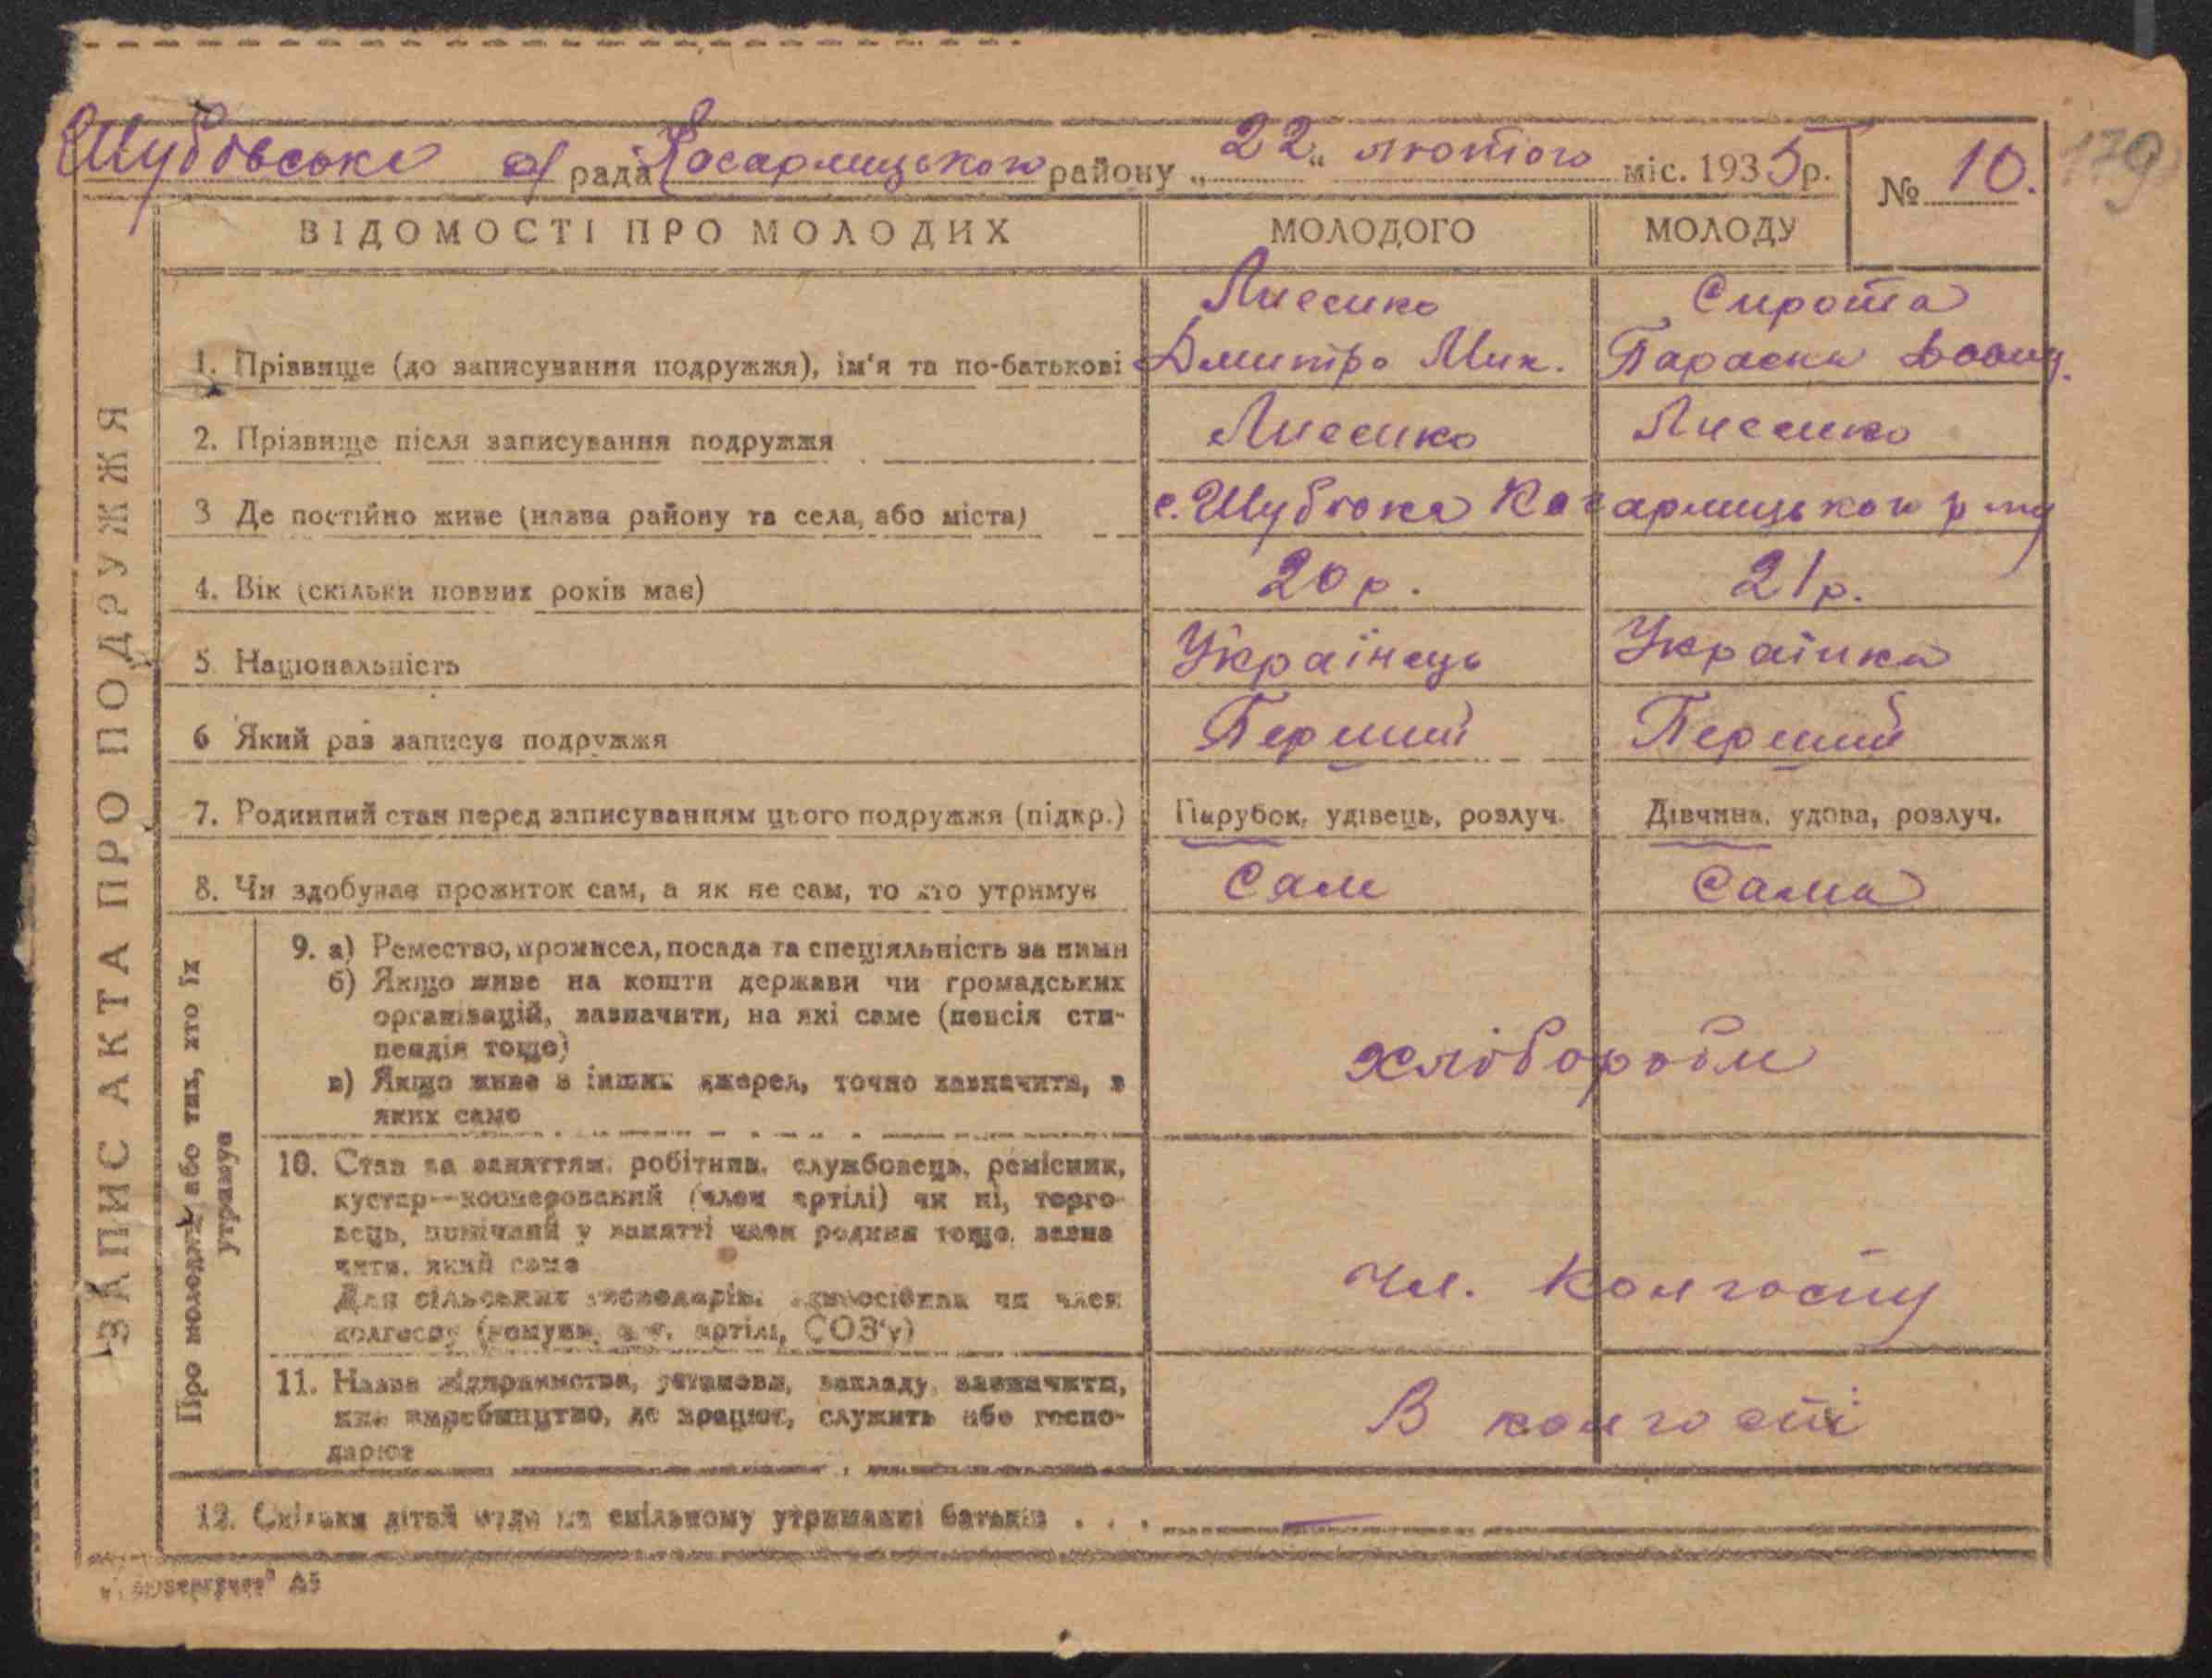 Шубовська с/рада Кагарлицького району „22“ лютого міс. 1935р. № 10.
179
ЗАПИС АКТА ПРО ПОДРУЖЖЯ
ВІДОМОСТІ ПРО МОЛОДИХ МОЛОДОГО МОЛОДУ
Лисенко Сирота
1. Прізвище (до записування подружжя), ім'я та по-батькові Дмитро Мик. Параска
2. Прізвище після записування подружжя Лисенко Лисенко
3 Де постійно живе (назва району та села, або міста) с. Шубовка Кагарлицького р-ну
4. Вік (скільки повних років має) 20 р. 21 р.
5. Національність Українець Українка
6 Який раз записує подружжя Перший Перший
7. Родинний стан перед записуванням цього подружжя (підкр.) Парубок, удівець, розлуч. Дівчина, удова, розлуч.
8. Чи здобуває прожиток сам, а як не сам, то хто утримує Сам Сама
Про молодих, або тих, хто їх
утримує
9. а) Ремество, промисел, посада та спеціяльність за ними
б) Якщо живе на кошти держави чи громадських
організацій, зазначити, на які саме (пенсія сти-
пендія тощо)
в) Якщо живе з інших джерел, точно зазначити, з
яких само
хлібороби
10. Стан за заняттям: робітник, службовець, ремісник,
кустар--кооперований (член артілі) чи ні, торго-
вець, помічний у занятті член родини тощо, зазна
чити, який саме
Для сільських господарів: одноосібник чи член
колгоспу (комуни, артілі, СОЗ'у)
чл. колгоспу
11. Назва підприємства, установи, закладу, зазначити,
яке виробництво, де працює, служить або госпо-
дарює
В колгоспі
12. Скільки дітей на спільному утриманні батьків . . . —